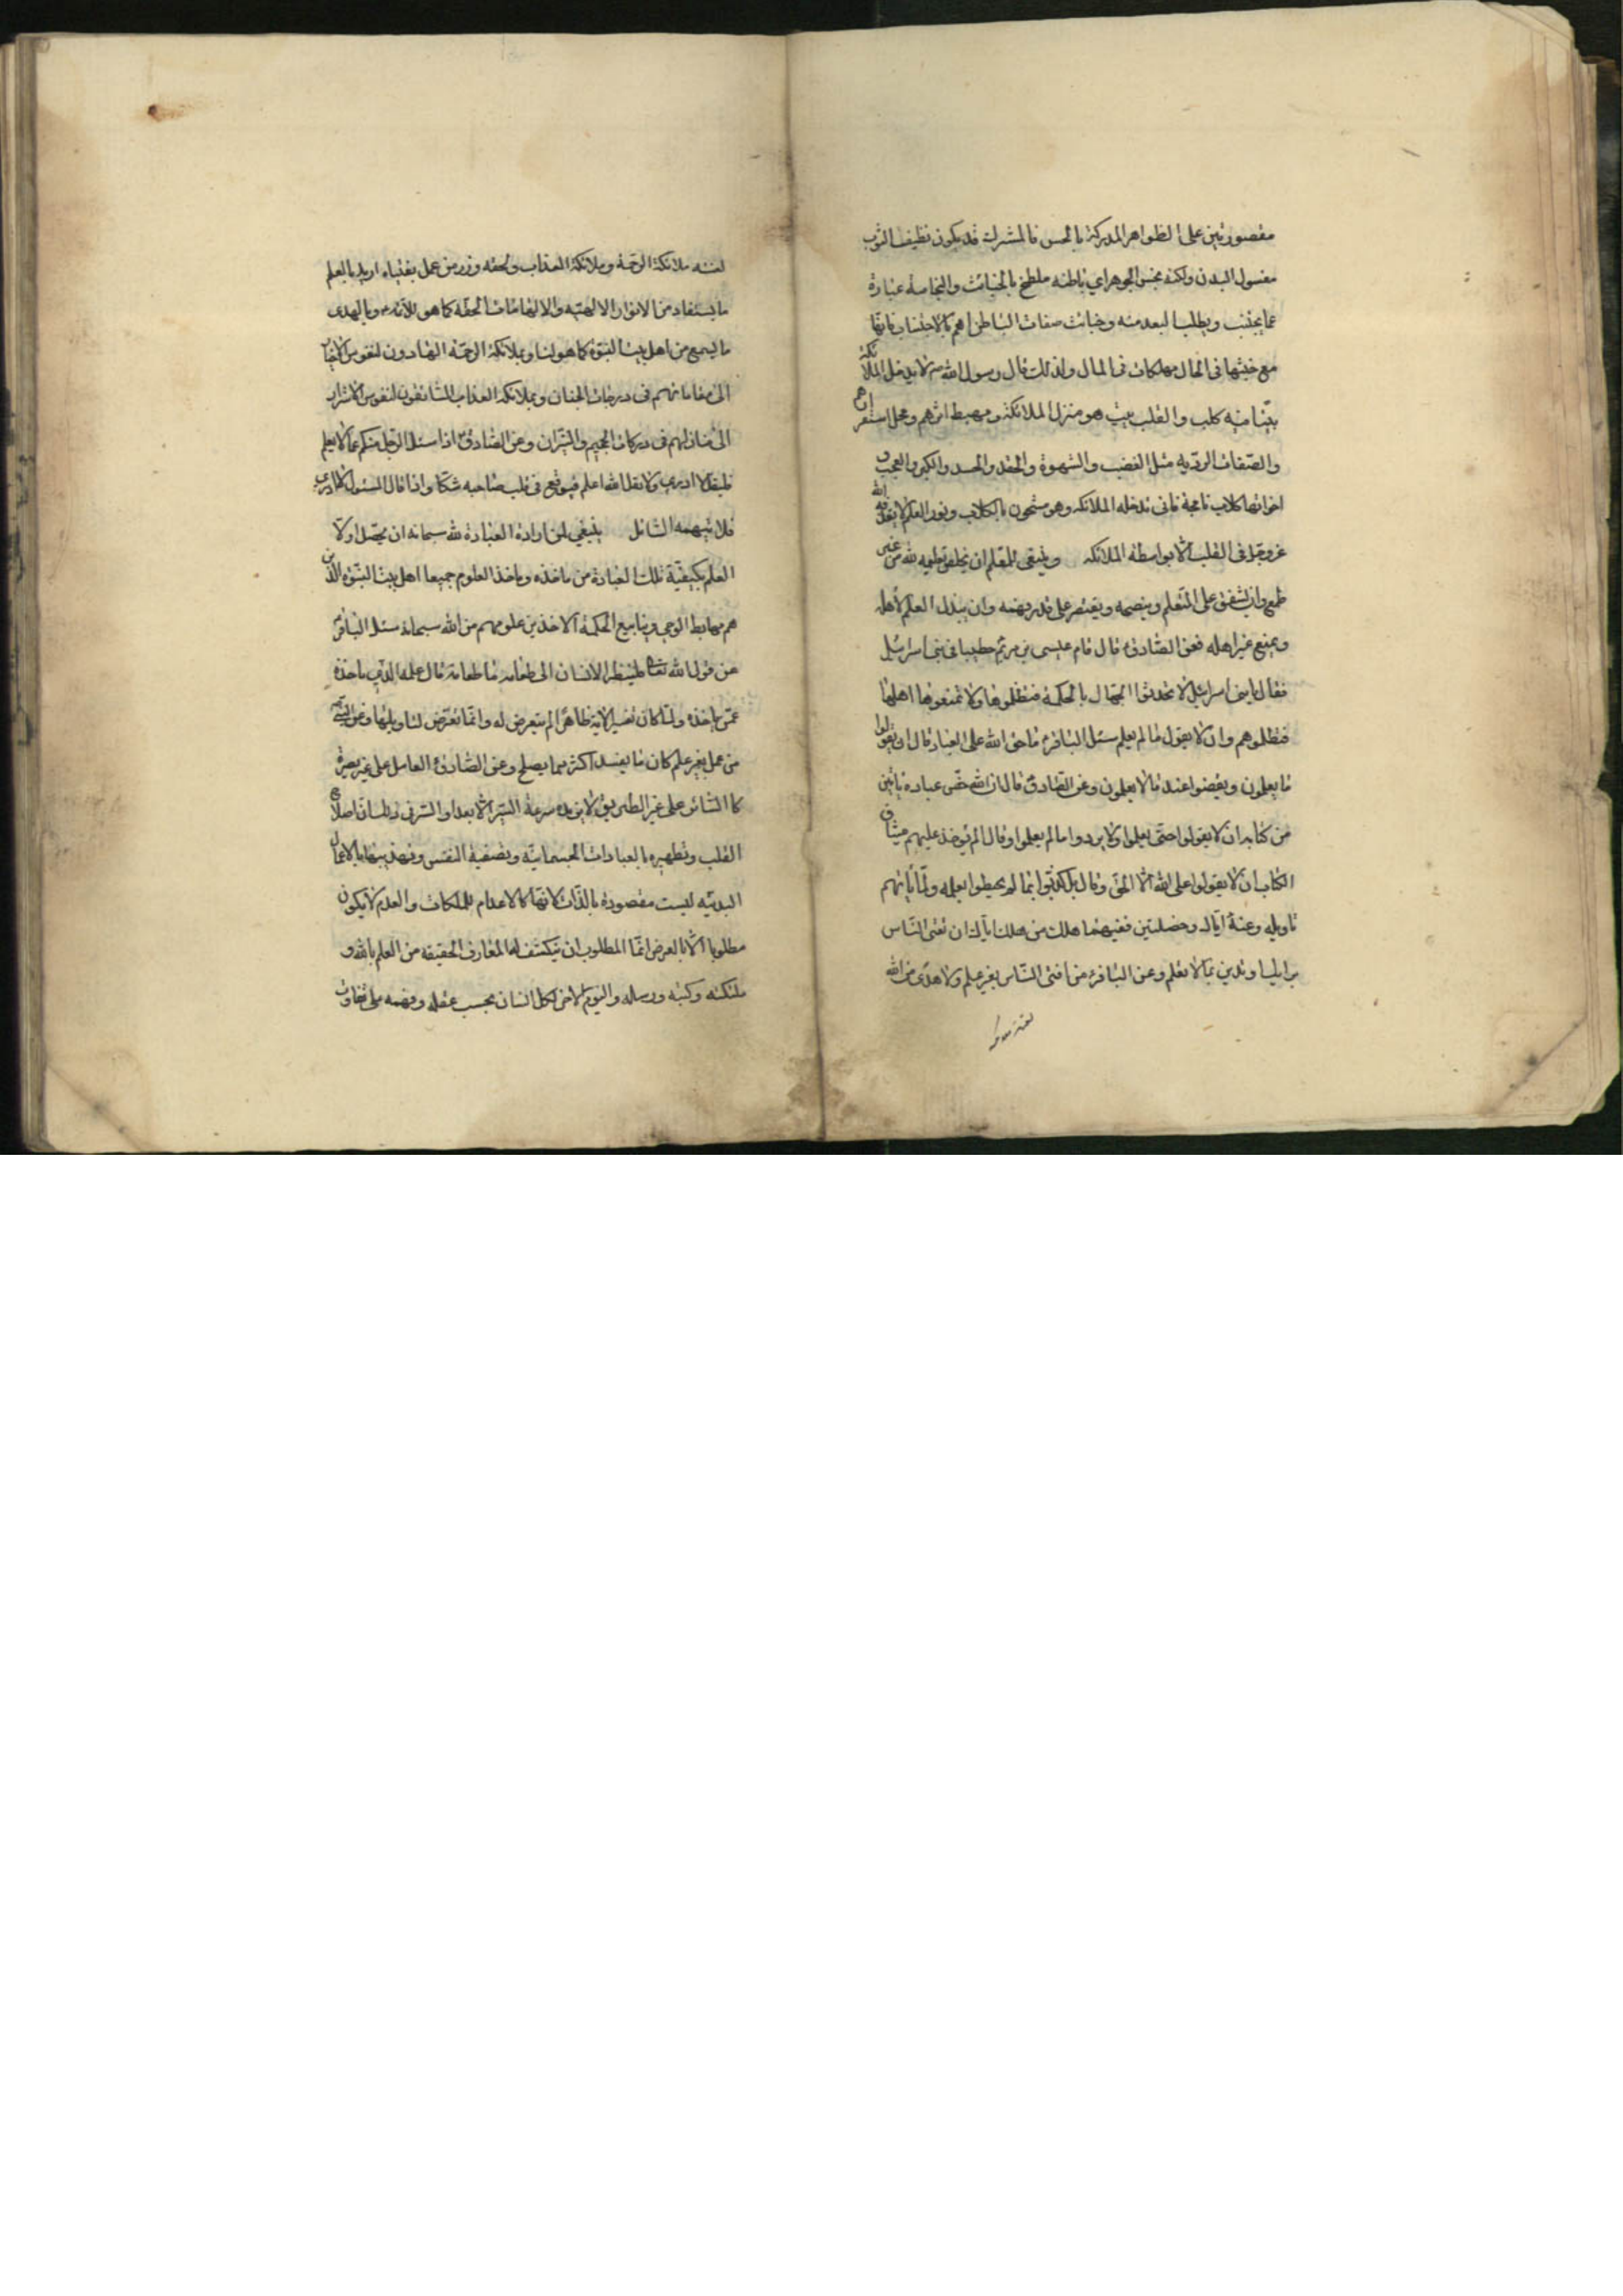 مقصورتين على الظواهر المدركة بالحس فالمشرك قد يكون نظيف الثوب
مغسول البدن ولكنه نجس الجوهر اي باطنه ملطخ بالخبائث والنجاسة عبارة
عما يجتنب ويطلب البعد منه وخبائث صفات الباطن اهم بالاجتناب فانها
مع خبثها في الحال مهلكات في المال ولذلك قال رسول الله ص لا يدخل الملائكة
بيتا فيه كلب والقلب بيت هو منزل الملائكة ومهبط اثرهم ومحل استقرارهم
والصفات الردية مثل الغضب والشهوة والحقد والحسد والكبر والعجب و
اخواتها كلاب نابحة فانى تدخله الملائكه وهو مشحون بالكلاب ونور العلم لا يقذفه الله
عزوجل في القلب الا بواسطة الملائكه وينبغي للمعلم ان يخلص تعليمه لله من غير
طمع وان يشفق على المتعلم وينصحه ويقتصر على قدر فهمه وان يبذل العلم لأهله
ويمنع غير اهله فعن الصادق ع قال قام عيسى بن مريم خطيبا في بني اسرائيل
فقال يا بني اسرائيل لا تحدثوا الجهال بالحكمة فتظلموها ولا تمنعوها اهلها
فتظلموهم وان لا يقول ما لم يعلم سئل الباقر ع ما حق الله على العباد قال ان يقولوا
ما يعلمون ويقفوا عند ما لا يعلمون وعن الصادق ع قال ان الله خص عباده بايتين
من كتابه ان لا يقولوا حتى يعلموا ولا يردوا ما لم يعلموا وقال الم يؤخذ عليهم ميثاق
الكتاب ان لا يقولوا على الله الا الحق وقال بل كذبوا بما لم يحيطوا بعلمه ولما ياتهم
تاويله وعنه ع اياك وخصلتين ففيهما هلك من هلك اياك ان تفتى الناس
برايك او تدين بما لا تعلم وعن الباقر ع من افتى الناس بغير علم ولا هدى من الله
لعنته ملائكة الرحمة وملائكة العذاب ولحقه وزر من عمل بفتياه اريد بالعلم
ما يستفاد من الانوار الالهيه والالهامات الحقه كما هو للائمه ع وبالهدى
ما يسمع من اهل بيت النبوة كما هو لنا وبملائكة الرحمة الهادون لنفوس الاخيار
الى مقاماتهم في درجات الجنان وبملائكة العذاب السائقون لنفوس الاشرار
الى منازلهم في دركات الجحيم والنيران وعن الصادق ع اذا سئل الرجل منكم عما لا يعلم
فليقل لا ادري ولا يقل الله اعلم فيوقع في قلب صاحبه شكا واذا قال المسئول لا ادري
فلا يتهمه السائل ينبغي لمن اراده العبادة لله سبحانه ان يحصل اولا
العلم بكيفية تلك العبادة من ماخذه وماخذ العلوم جميعا اهل بيت النبوة الذين
هم مهابط الوحي وينابيع الحكمة الاخذين علومهم من الله سبحانه سئل الباقر ع
عن قول الله تعالى فلينظر الانسان الى طعامه ما طعامه قال علمه الذي ياخذه
عمن ياخذه ولما كان تفسير الاية ظاهرا لم يتعرض له وانما تعرض لتاويلها وعن النبي ص
من عمل بغير علم كان ما يفسد اكثر مما يصلح وعن الصادق ع العامل على غير بصيرة
كالسائر على غير الطريق لا يزيده سرعة السير الا بعدا والسر في ذلك ان اصلاح
القلب وتطهيره بالعبادات الجسمانية وتصفية النفس وتهذيبها بالاعمال
البدنيه ليست مقصودة بالذات لانها كالاعدام للملكات والعدم لا يكون
مطلوبا الا بالعرض انما المطلوب ان ينكشف له المعارف الحقيقه من العلم بالله و
ملئكته وكتبه ورسله واليوم الاخر لكل انسان بحسب عقله وفهمه على تفاوت